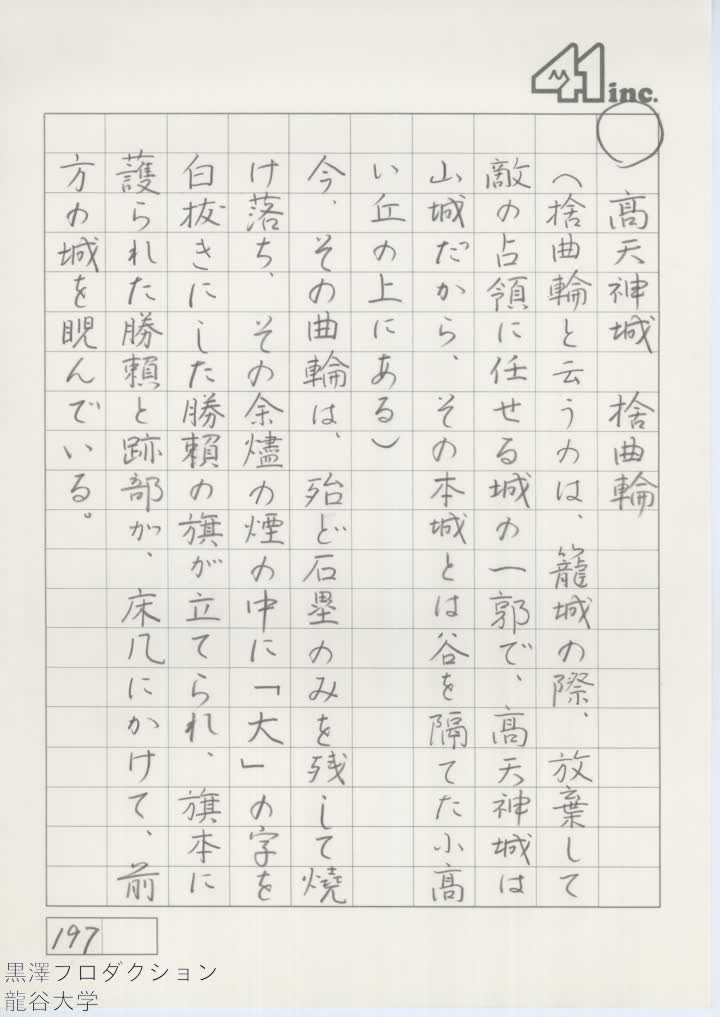 41 inc.
○ 高天神城 捨曲輪
(捨曲輪と云うのは、籠城の際、放棄して
敵の占領に任せる城の一郭で、高天神城は
山城だから、その本城とは谷を隔てた小高
い丘の上にある)
今、その曲輪は、殆ど石塁のみを残して燒
け落ち、その余燼の煙の中に「大」の字を
白抜きにした勝頼の旗が立てられ、旗本に
護られた勝頼と跡部が、床几にかけて、前
方の城を睨んでいる。
197
黒澤プロダクション
龍谷大学